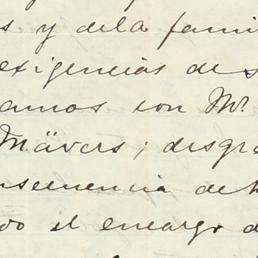 s y dela fami
exigencias de s
amos con Mr.
Mävers; desgra
nsecuencia de h
do el encargo d